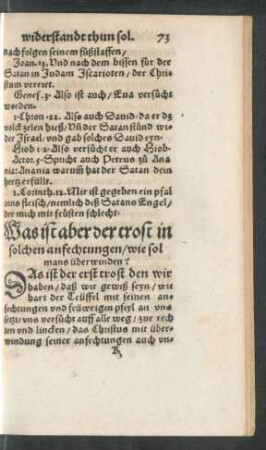 widerstandt thun sol. 73
nach folgen seinem fůßstaffen/
Joan.13. Vnd nach dem bissen für der
Satan in Judam Iscarioten/ der Chri
stum verriet.
Genes.3. Also ist auch/ Eua versůcht
worden.
1. Chron. 22. Also auch Dauid/ da er dz
volck zelen hieß/ Vñ der Satan stůnd wi-
der Israel/ vnd gab solchs Dauid eyn.
Hiob 1.2. Also versůcht er auch Hiob
Actor.5. Spricht auch Petrus zů Ana
nia: Anania warum̃ hat der Satan dein
hertz erfüllt.
2. Corinth.12. Mir ist gegeben ein pfal
inns fleisch/ nemlich deß Satans Engel/
der mich mit feüsten schlecht.
Was ist aber der trost in
solchen anfechtungen/ wie sol
mans überwinden?
DAs ist der erst trost den wir
haben/ daß wir gewiß seyn/ wie
hart der Teüffel mit seinen an-
fechtungen vnd feüwrigen pfeyl an vns
setzt/ vns versůcht auff alle weg/ zur rech
ten vnd lincken/ das Christus mit über-
windung seiner anfechtungen auch vn-
K